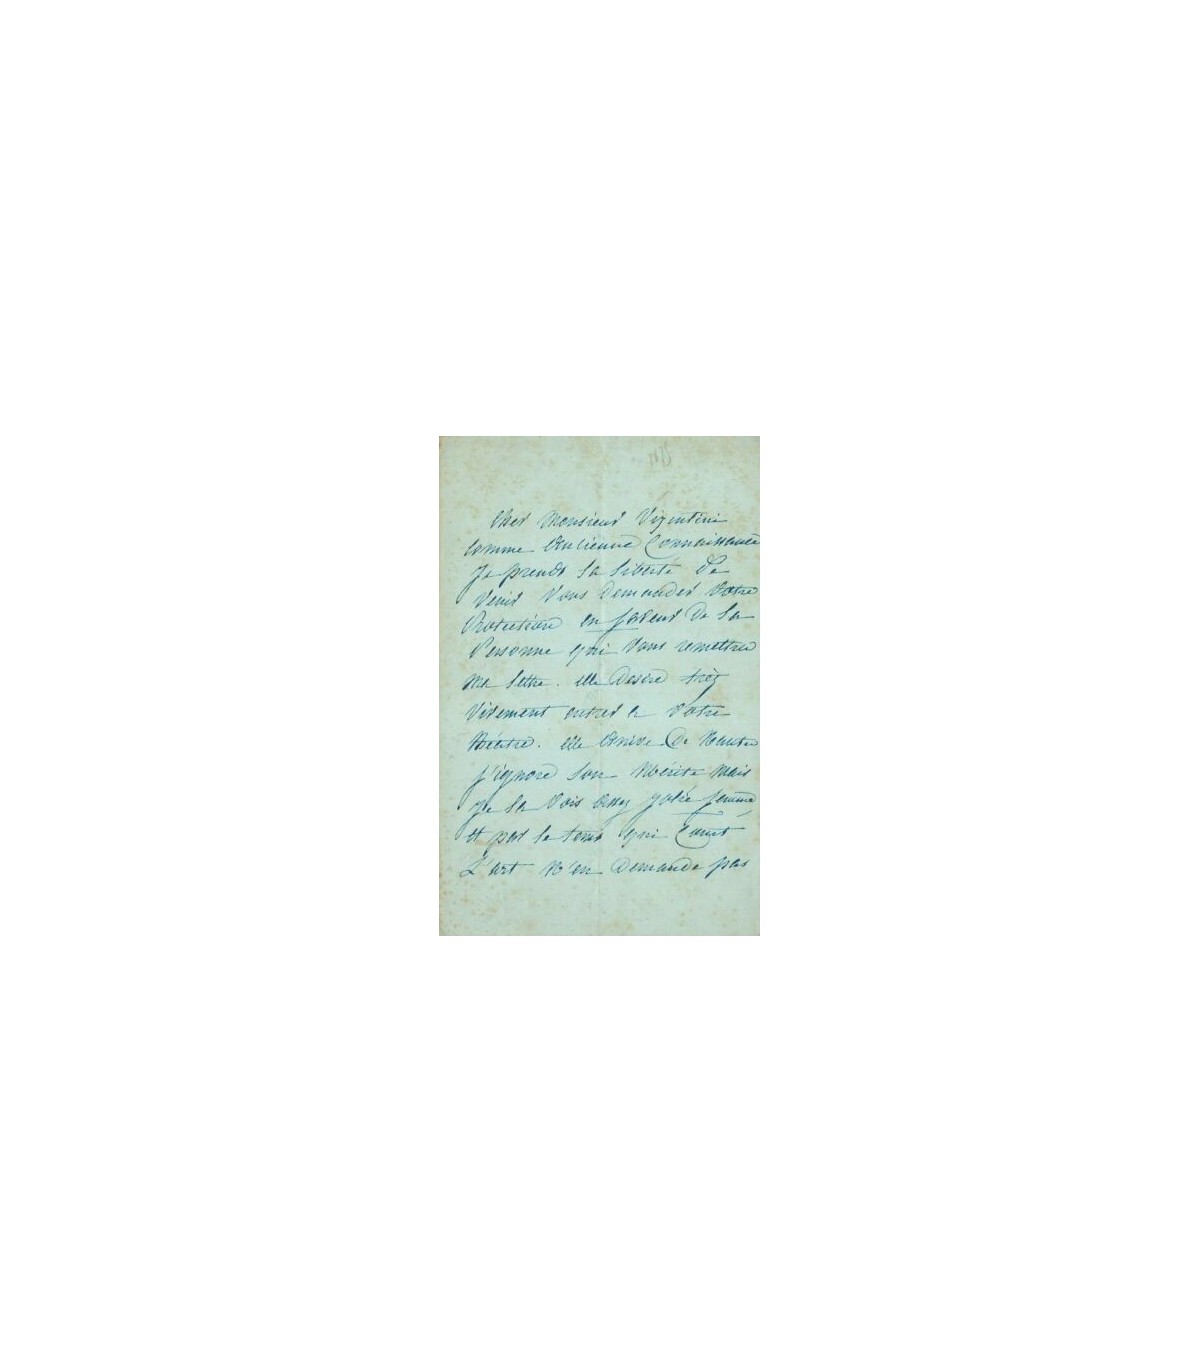 Cher Monsieur Vizentini
Comme Ancienne Connaissance
Je prends la liberté de
venir vous demander votre
Protection en faveur de la
Personne qui vous remettra
ma lettre. elle desire très
vivement entrer a votre
théatre. elle arrive de Nantes
j'ignore son Mérite mais
je la vois assez jolie femme
et par le tems qui Court
L'art N'en Demande pas